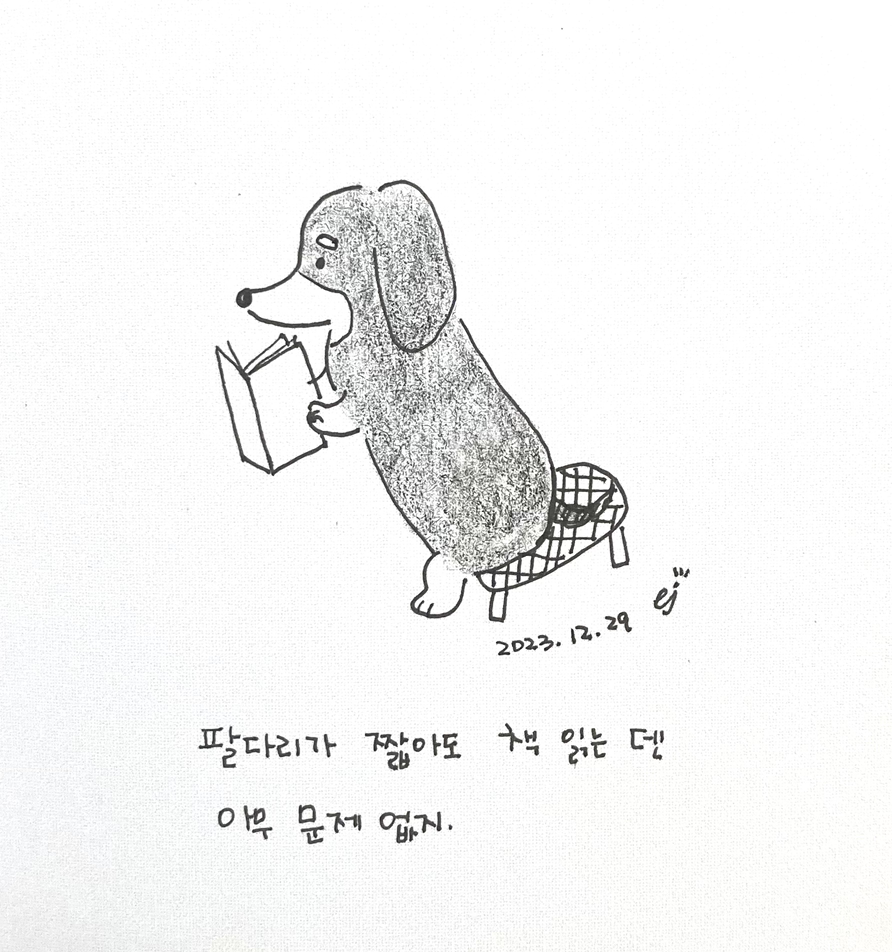 2023.12.29 ej
팔다리가 짧아도 책 읽는 덴
아무 문제 없지.